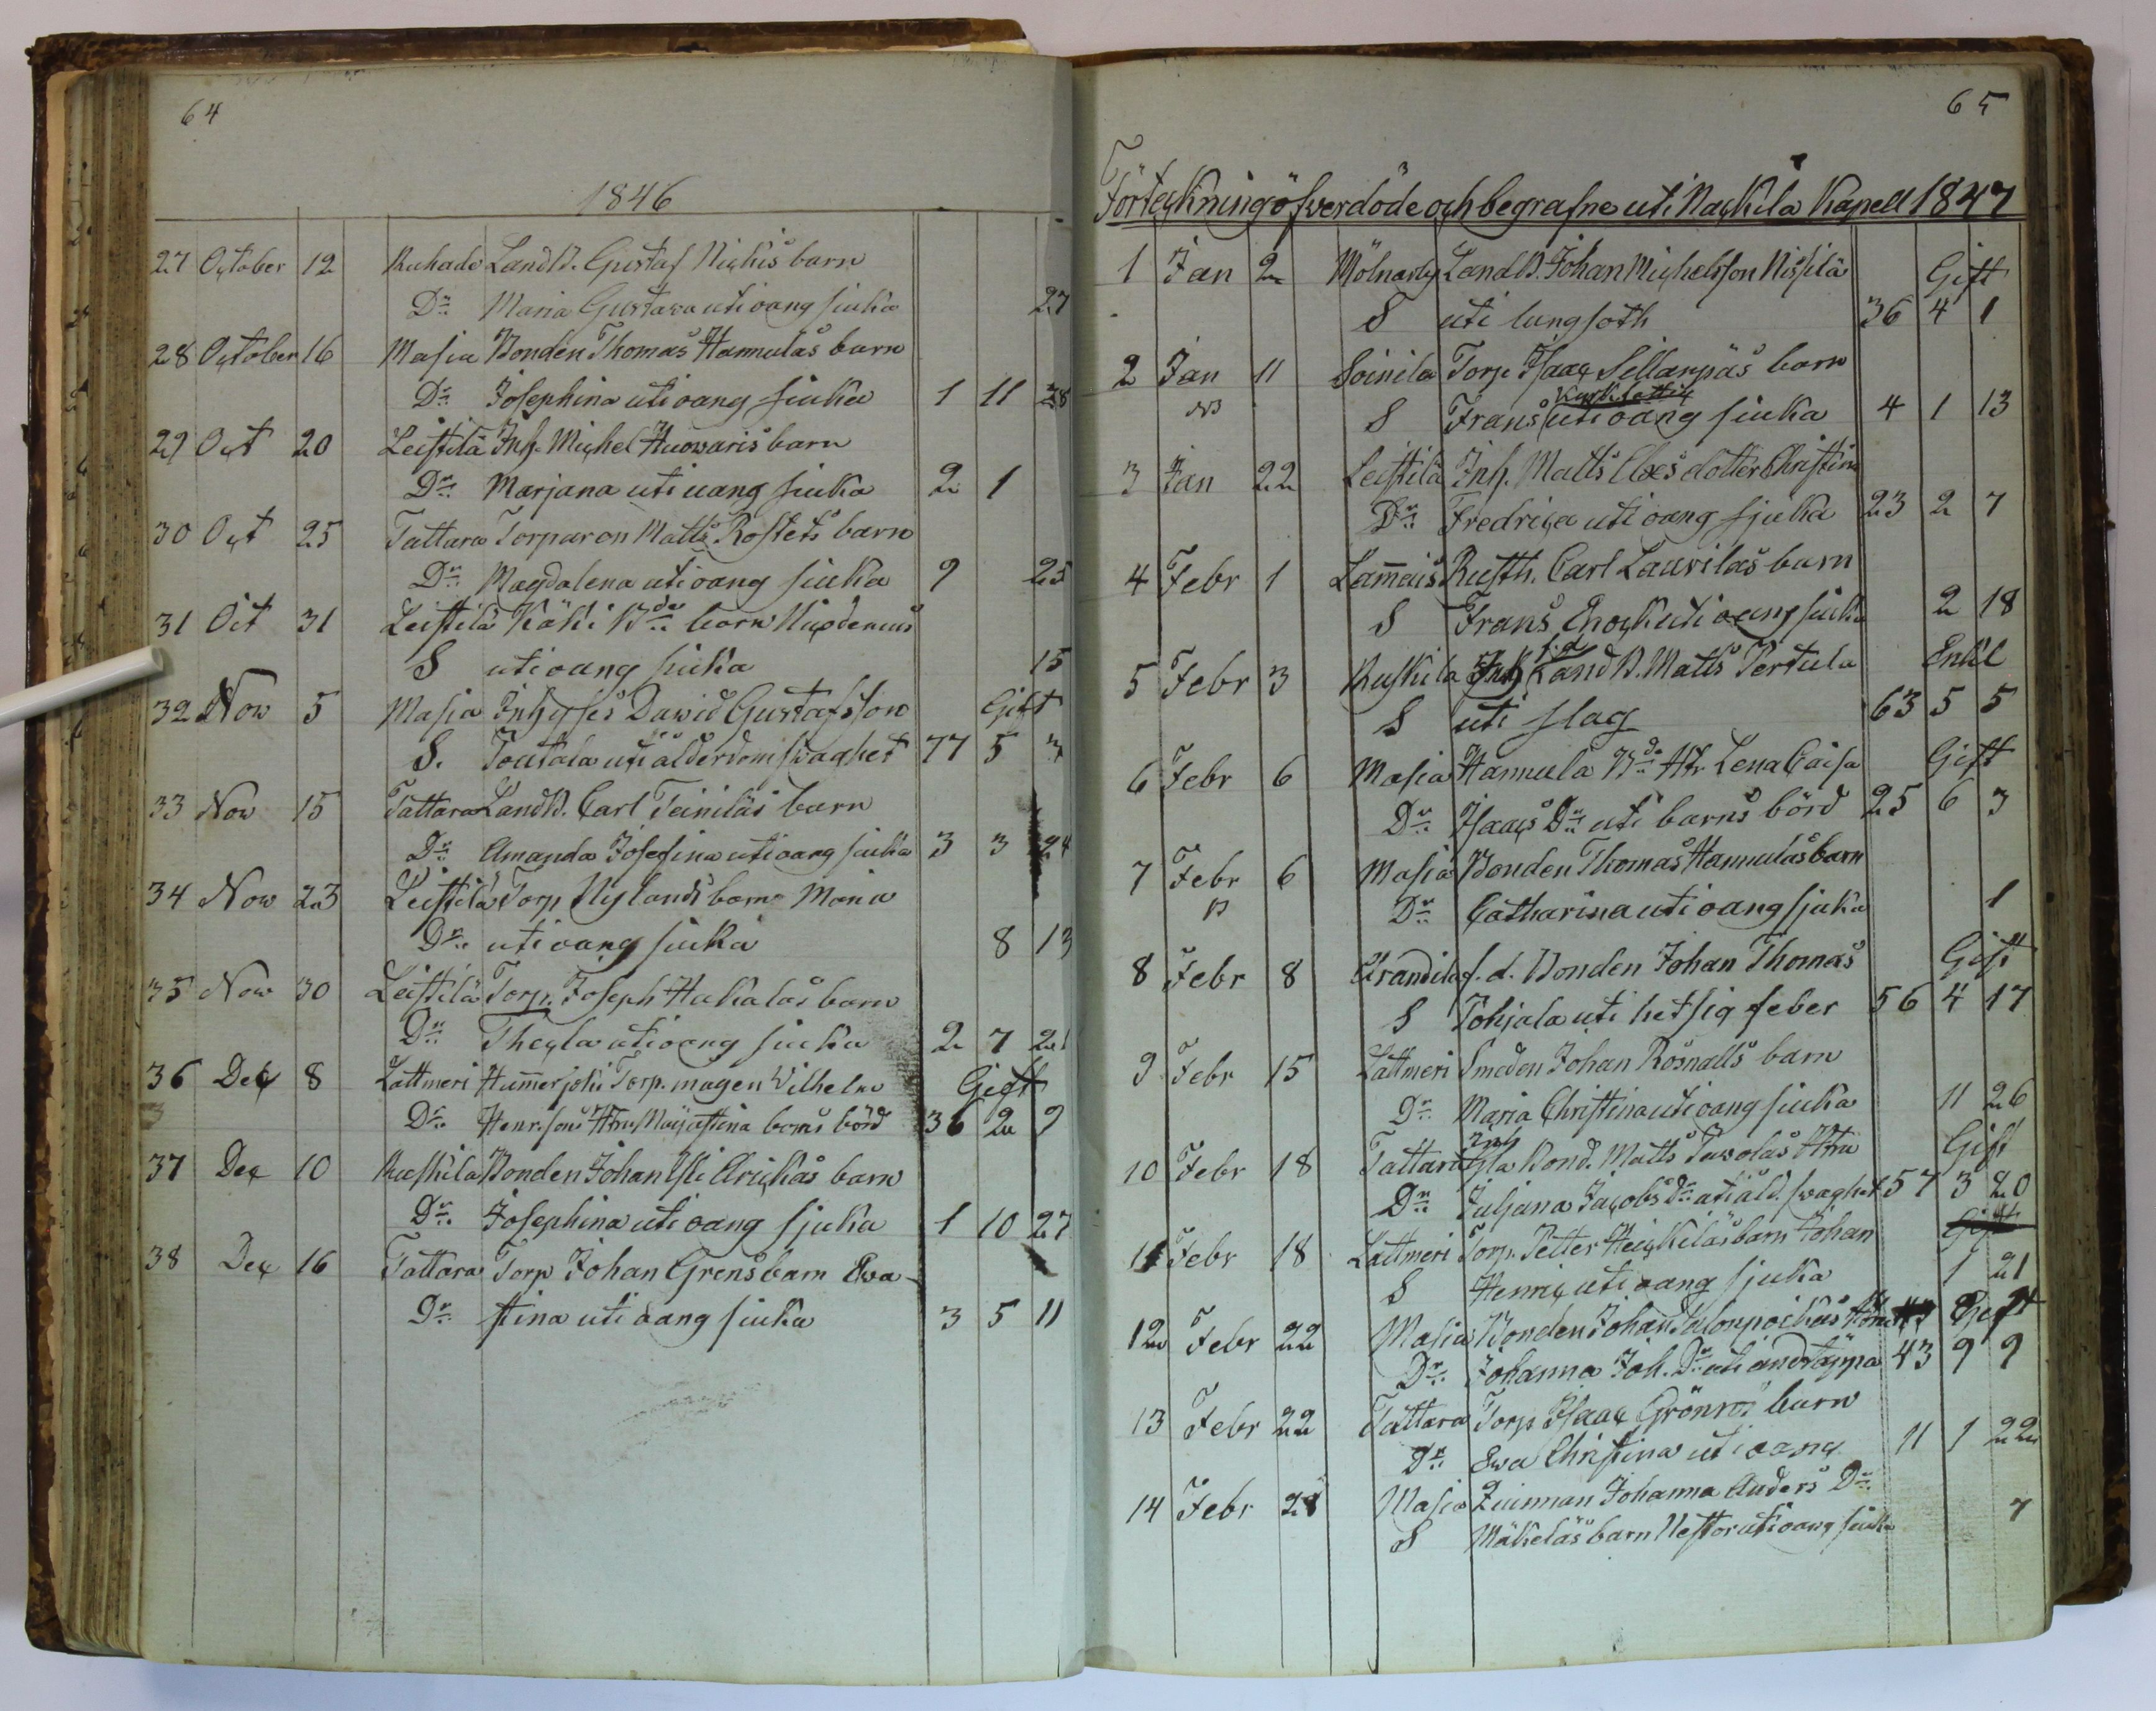 64
1846
27 October 12 Ruhade Landb. Gustaf Nickis barn
Dr Maria Gustava uti oang siuka 27
28 October 16 Masia Bonden Thomas Hannulas barn
Dr Josephina uti oang siuka 1 11 28
29 Oct 20 Leistilä Inh. Michel Huowaris barn
Dr Marjana uti uang siuka 2 1
30 Oct 25 Tattara Torparen Matts Rostets barn
Dr Magdalena uti oang siuka 9 25
31 Oct 31 Leistilä Kähi Bde barn Nicodemus
S uti oang siuka 15
32 Now 5 Masia Inhyses Dawid Gustafsson Gift
S. Toatala uti ålderdoms swaghet 77 5
33 Now 15 Tattara Landb. Carl Teiniläs barn
Dr Amanda Josefina uti oang siuka 3 3 24
34 Now 23 Leistilä Torp Nylands barn Maria
Dr uti oang siuka 8 13
35 Now 30 Leistilä Torp. Joseph Hukalas barn
Dr Thecla uti oang siuka 2 7 21
36 Dec 8 Lattmeri Hum̄erjoki Torp. magen Wilhelm Gift
Dr Henr.sons Hru Majastina barns börd 36 2 9
37 Dec 10 Ruskila Bonden Johan Yli Arickas barn
Dr Josephina uti oang sjuka 1 10 27
38 Dec 16 Tattara Torp Johan Grens barn Ewa
Dr stina uti oang siuka 3 5 11
65
Förteckning öfwer döde och begrafne uti Nackila Kapell 1847
1 Jan 2 Mölnarby Landb. Johan Michelsson Nissilä Gift
S uti lungsoth 36 4 1
2 Jan 11 Soinila Torp. Isaac Sillanpäs barn
NB S Frans uti oang siuka 4 1 13
3 Jan 22 Leistilä Inh. Matts Claes dotter Christina
Dr Fredrica uti oang sjuka 23 2 7
4 Febr 1 Lam̄ais Rusth. Carl Laurilas barn
S Frans Enock uti oang siuka 2 18
5 Febr 3 Ruskila Inh Landb. Matts Pertula Enkl
S uti slag 63 5 5
6 Febr 6 Masia Hannula Bde Hr Lena Caisa Gift
Dr Isaacs Dr uti barns börd 25 6 3
7 Febr 6 Masia Bonden Thomas Hannulas barn
Dr Catharina uti oang sjuka 1
8 Febr 8 Arandila f. d. Bonden Johan Thomas Gift
S Pohjala uti hetsig feber 56 4 17
9 Febr 15 Lattmeri Smeden Johan Rosnalls barn
Dr Maria Christina uti oang siuka 11 26
10 Febr 18 Tattara Bond. Matts Pawolas Hru Gift
Dr Juljana Jacobs Dr uti åld. swaghet 57 3 20
11 Febr 18 Lattmeri Torp. Petter Heickiläs barn Johan Gift
S Henric uti oang sjuka 1 21
12 Febr 22 Masia Bonden Johan Talonpoikas Gift
Dr Johanna Joh. Dr uti andtäppa 43 9 9
13 Febr 22 Tattara Torp Isaac Grönros barn
Dr Ewa Christina uti oang 11 1 22
14 Febr 28 Masia Quinnan Johanna Anders Dr
S Mäkeläs barn Nestor uti oang siuka 7